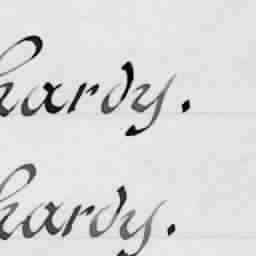 hardy.
hardy.